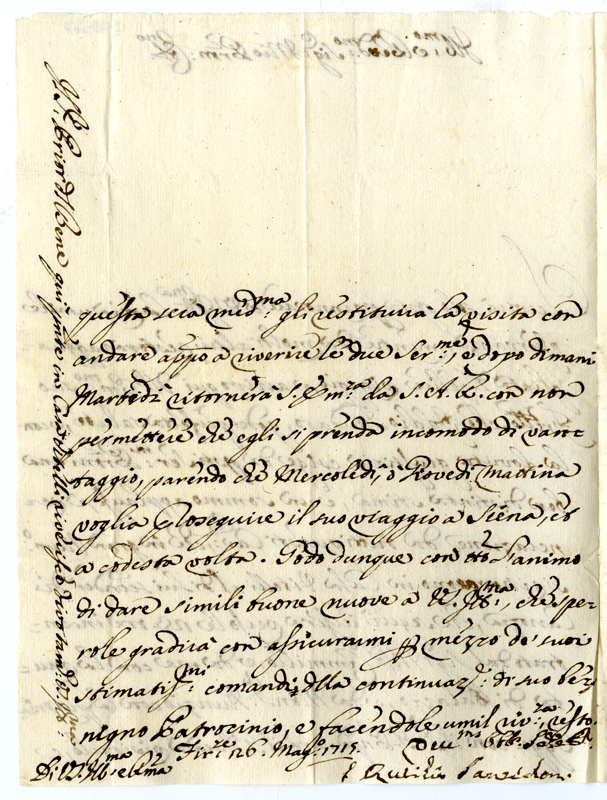 questa sera med.ma gli restituirà la visita con
andare app.o a riverire le due Ser.me, e dopo dimani
Martedì ritornerà S. Em.za da S. A. R. con non
permettere che egli si prenda incomodo di vant=
taggio, parendo che Mercoledì, ò Giovedì mattina
voglia proseguire il suo viaggio a Siena, et
a codesta volta. Godo dunque con tto l'animo
di dare simili buone nuove a V.S. Ill.ma, che spe=
role gradirà con assicurarmi per mezzo de' suoi
stimatis.mi comandi della continuaz.e di suo be=
nigno Patrocinio, e facendole umil riv.za, resto.
Fir.ze 26. Mag.o 1715.
Di V.S. Ill.ma
Il S.r Prior del Bene qui